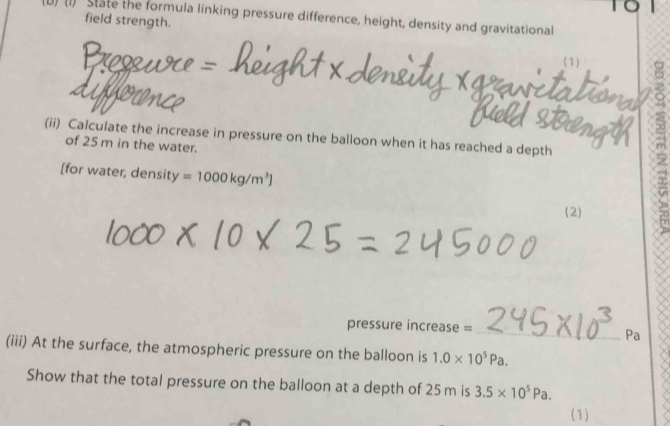 (b) (i) State the formula linking pressure difference, height, density and gravitational
field strength.
(1)
Pressure = height x density x gravitational
difference field strength
(ii) Calculate the increase in pressure on the balloon when it has reached a depth
of 25 m in the water.
[for water, density = 1000 kg/m³]
(2)
1000 x 10 x 25 = 245000
pressure increase = 245x10³ Pa
(iii) At the surface, the atmospheric pressure on the balloon is 1.0 × 10⁵ Pa.
Show that the total pressure on the balloon at a depth of 25 m is 3.5 × 10⁵ Pa.
(1)
DO NOT WRITE IN THIS AREA